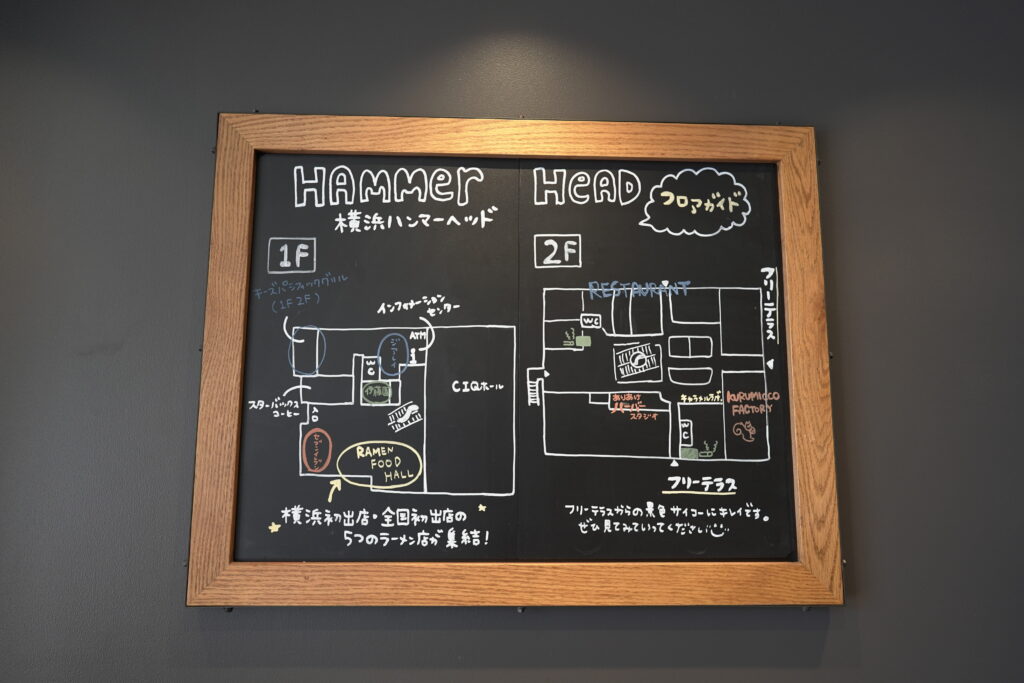 HAMMER HEAD
横浜ハンマーヘッド
フロアガイド
1F
チーズパシフィックグリル
(1F 2F)
インフォメーション
センター
ATM
ジアレイ
WC
伊藤園
CIQホール
スターバックス
コーヒー
セブンイレブン
RAMEN
FOOD
HALL
横浜初出店・全国初出店の
5つのラーメン店が集結!
2F
RESTAURANT
フリーテラス
WC
ありあけ
ハーバー
スタジオ
キャラメルラボ
KURUMICCO
FACTORY
WC
フリーテラス
フリーテラスからの景色サイコーにキレイです。
ぜひ見てみていってください